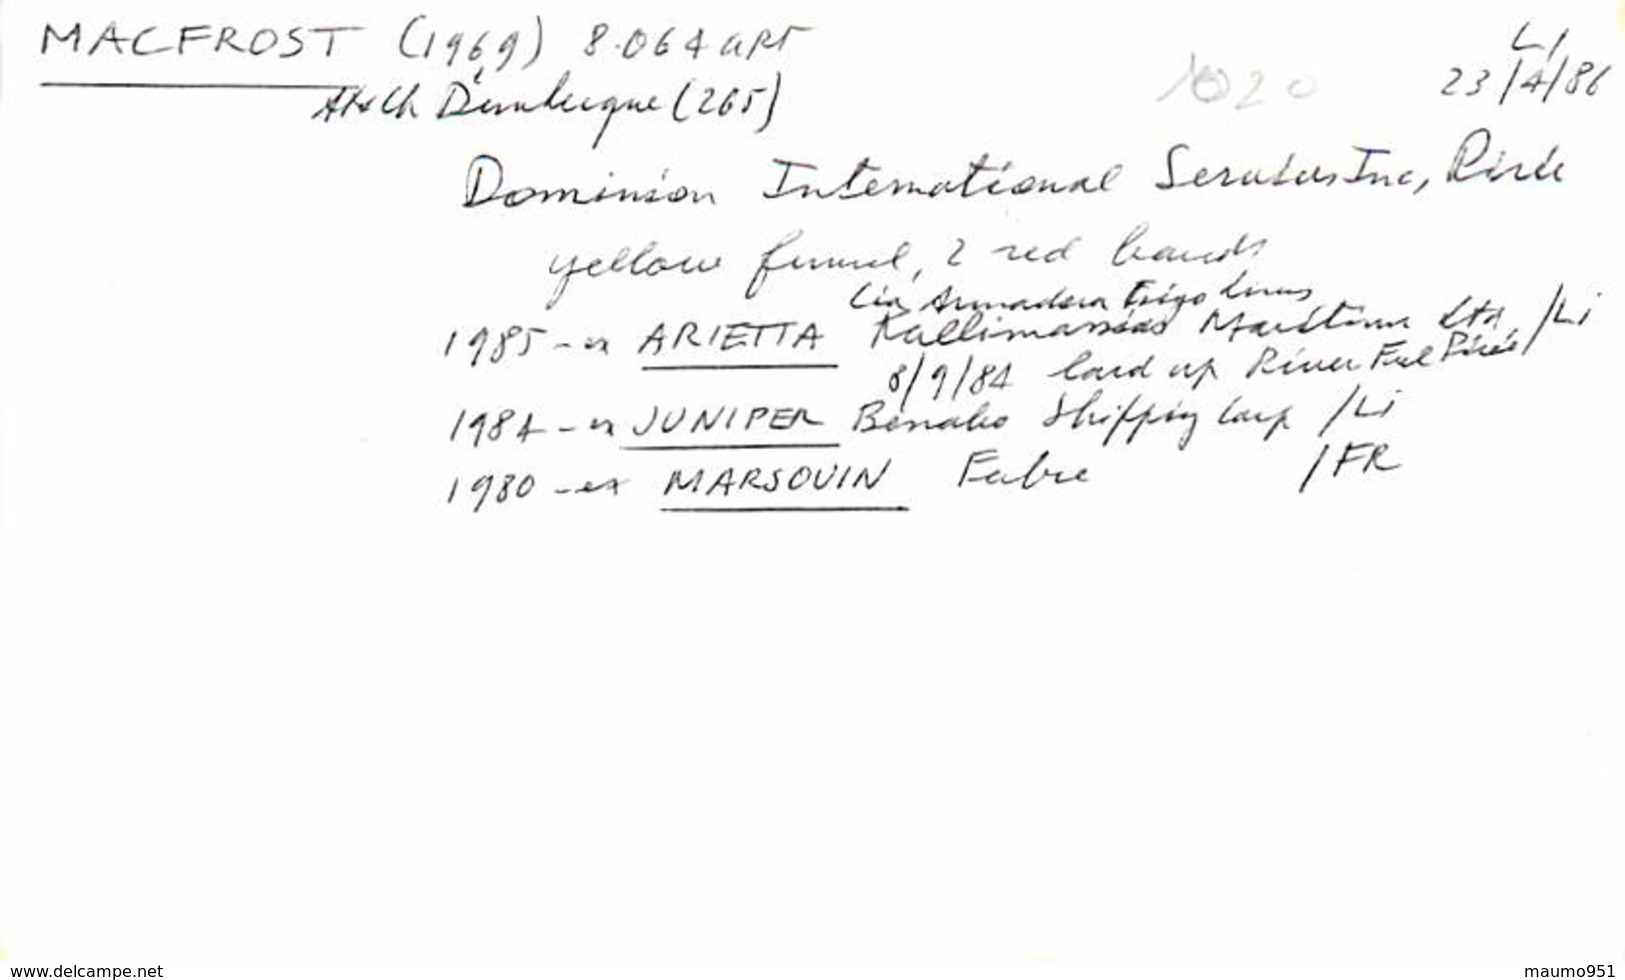 MACFROST (1969) 8.064 GRT L/
1020 23/4/86
At&Ch Dunkerque (265)
Dominion International Services Inc,
yellow funnel, 2 red bands
Cia Armadora Trigo Lines
1985 - ex ARIETTA Kallimassias Maritime Ltd, /Li
8/9/84 laid up River Fal
1984 - ex JUNIPER Shipping Corp /Li
1980 - ex MARSOUIN Fabre /FR
www.delcampe.net maumo951